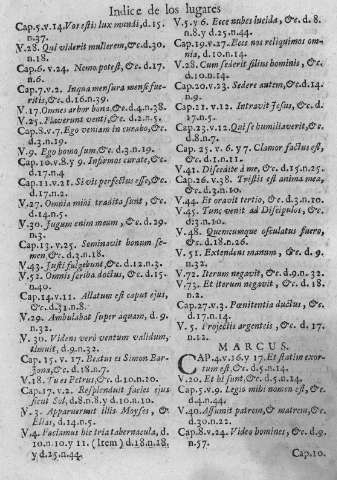 Indice de los lugares
Cap.5.v.14. Vos estis lux mundi, d.15.
n.37.
V.28. Qui viderit mulierem, &c. d.30.
n.18.
Cap.6.v.24. Nemo potest, &c. d.17.
n.6.
Cap.7.v.2. In qua mensura mensi fue-
ritis, &c. d.16.n.39.
V.17. Omnes arbor bona, &c. d.4.n.38.
V.25. Flaverunt venti, &c. d.2.n.5.
Cap.8.v.7. Ego veniam in curabo, &c.
d.3.n.19.
V.9. Ego homo sum, &c. d.3.n.19.
Cap.10.v.8.y 9. Infirmos curate, &c.
d.17.n.4
Cap.11.v.21. Si vis perfectus esse, &c.
d.17.n.2.
V.27. Omnia mihi tradita sunt, &c.
d.14.n.5.
V.30. Iugum enim meum, &c. d.29.
n.3.
Cap.13.v.25. Seminavit bonum se-
men, &c. d.3.n.18.
V.43. Justi fulgebunt, &c. d.12.n.3.
V.52. Omnis scriba doctus, &c. d.15.
n.40.
Cap.14.v.11. Allatum est caput ejus,
&c. d.31.n.8.
V.29. Ambulabat super aquam, d.9.
n.32.
V.30. Videns verò ventum validum,
timuit, d.9.n.32.
Cap.15.v.17. Beatus es Simon Bar-
Jona, &c. d.18.n.7.
V.18. Tu es Petrus, &c. d.10.n.20.
Cap.17.v.2. Resplenduit facies ejus
sicut Sol, d.8.n.8.y d.10.n.10.
V.3. Apparuerunt illis Moyses, &
Elias, d.14.n.5.
V.4. Faciamus hic tria tabernacula, d.
10.n.10.y 11. (Item) d.18.n.28.
y d.25.n.44.
V.5.y 6. Ecce nubes lucida, &c. d.8.
n.8.y d.25.n.44.
Cap.19.v.27. Ecce nos reliquimos om-
nia, d.10.n.14.
V.28. Cum sederit filius hominis, &c.
d.10.n.14.
Cap.20.v.23. Sedere autem, &c. d.14.
n.9.
Cap.21.v.12. Intravit Jesus, &c. d.
n.10.
Cap.23.v.12. Qui se humiliaverit, &c.
d.8.n.7.
Cap.25.v.6.y 7. Clamor factus est,
&c. d.1.n.11.
V.41. Discedite à me, &c. d.15.n.25.
Cap.26.v.38. Tristis est anima mea,
&c. d.3.n.10.
V.44. Et oravit tertio, &c. d.3.n.10.
V.45. Tunc venit ad Discipulos, &c.
d.3.n.10.
V.48. Quemcumque osculatus fuero,
&c. d.18.n.26.
V.51. Extendens manum, &c. d.9.
n.32.
V.72. Iterum negavit, &c. d.9.n.32.
V.73. Et iterum negavit, &c. d.18.
n.2.
Cap.27.v.3. Pœnitentia ductus, &c.
d.17.n.10.
V.5. Projectis argenteis, &c. d.17.
n.12.
MARCUS.
CAP.4.v.16.y 17. Et statim exor-
tum est &c. d.5.n.14.
V.20. Et hi sunt, &c. d.5.n.14.
Cap.5.v.9. Legio mihi nomen est, &c.
d.4.n.44.
V.40. Assumit patrem, & matrem, &c.
d.30.n.22.
Cap.8.v.24. Video homines, &c. d.9.
n.57.
Cap.10.